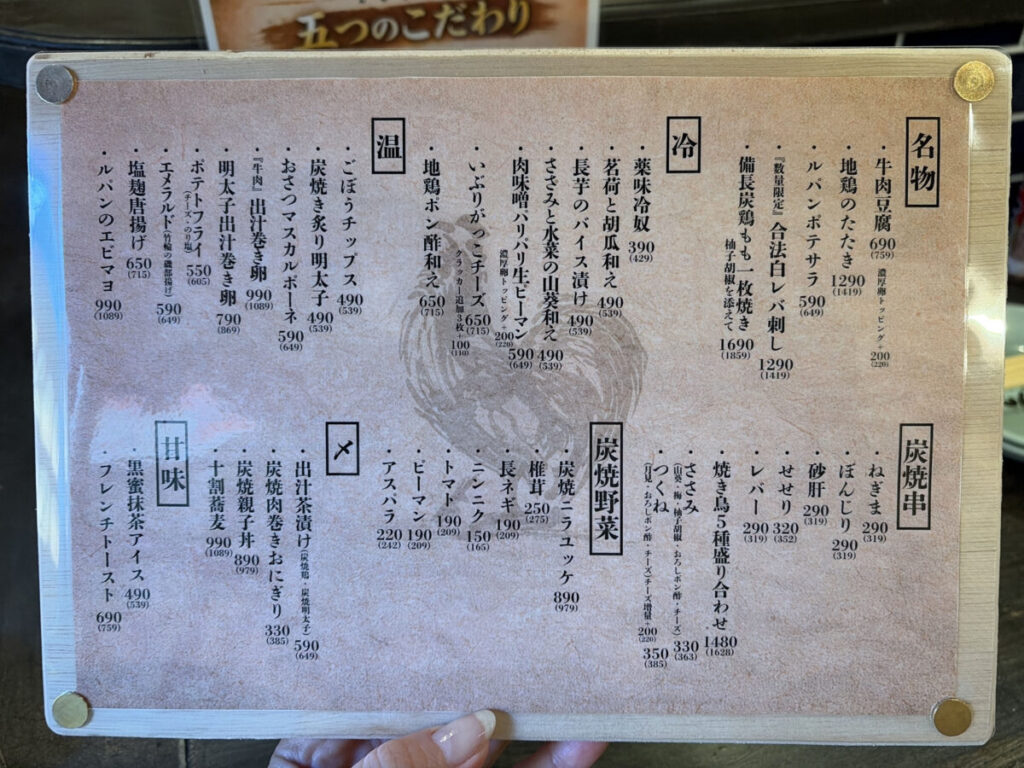 五つのこだわり
名物
・牛肉豆腐 690 (759) 濃厚卵トッピング+200 (220)
・地鶏のたたき 1290 (1419)
・ルパンポテサラ 590 (649)
・『数量限定』合法白レバ刺し 1290 (1419)
・備長炭鶏もも一枚焼き 柚子胡椒を添えて 1690 (1859)
冷
・薬味冷奴 390 (429)
・茗荷と胡瓜和え 490 (539)
・長芋のバイス漬け 490 (539)
・ささみと水菜の山葵和え 490 (539)
・肉味噌パリパリ生ピーマン 590 (649)
濃厚卵トッピング+200 (220)
・いぶりがっこチーズ 650 (715)
クラッカー追加3枚+100 (110)
・地鶏ポン酢和え 650 (715)
温
・ごぼうチップス 490 (539)
・炭焼き炙り明太子 490 (539)
・おさつマスカルポーネ 590 (649)
・『牛肉』出汁巻き卵 990 (1089)
・明太子出汁巻き卵 790 (869)
・ポテトフライ (チーズ・のり塩) 550 (605)
・エメラルド (竹輪の磯部揚げ) 590 (649)
・塩麹唐揚げ 650 (715)
・ルパンのエビマヨ 990 (1089)
炭焼串
・ねぎま 290 (319)
・ぼんじり 290 (319)
・砂肝 290 (319)
・せせり 320 (352)
・レバー 290 (319)
・焼き鳥5種盛り合わせ 1480 (1628)
・ささみ (山葵・梅・柚子胡椒・おろしポン酢・チーズ) 330 (363)
・つくね (月見・おろしポン酢・チーズ)チーズ増量+200 (220) 350 (385)
炭焼野菜
・炭焼ニラユッケ 890 (979)
・椎茸 250 (275)
・長ネギ 190 (209)
・ニンニク 150 (165)
・トマト 190 (209)
・ピーマン 190 (209)
・アスパラ 220 (242)
〆
・出汁茶漬け (炭焼鶏・炭焼明太子) 590 (649)
・炭焼肉巻きおにぎり 330 (385)
・炭焼親子丼 890 (979)
・十割蕎麦 990 (1089)
甘味
・黒蜜抹茶アイス 490 (539)
・フレンチトースト 690 (759)